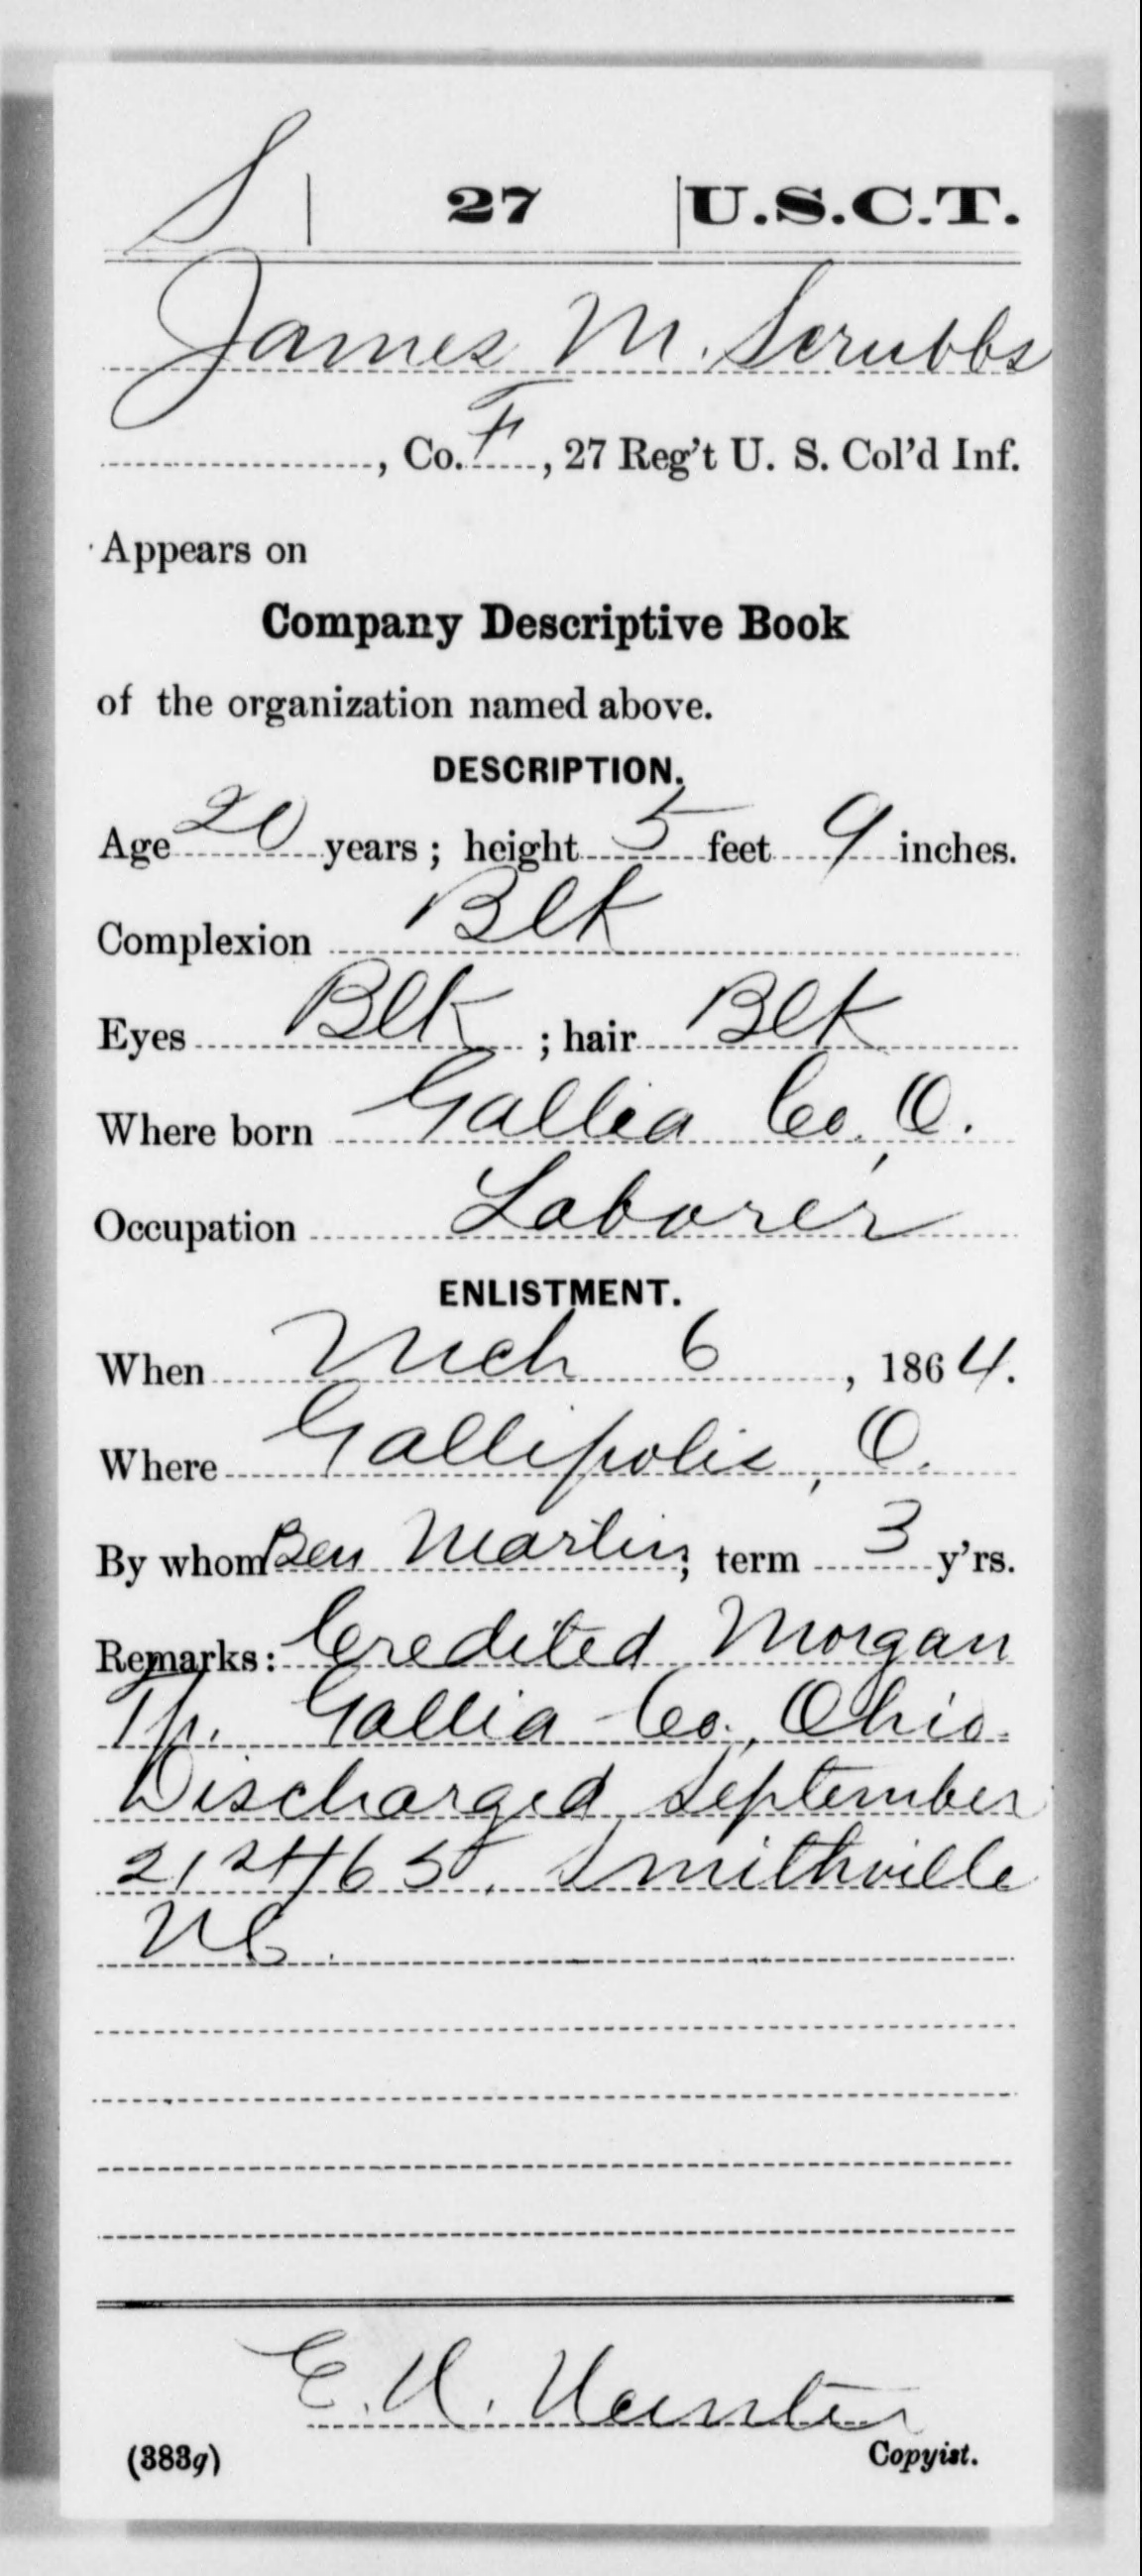 S | 27 | U.S.C.T.
James M. Scrubbs
, Co. F, 27 Reg't U. S. Col'd Inf.
Appears on
Company Descriptive Book
of the organization named above.
DESCRIPTION.
Age 20 years; height 5 feet 9 inches.
Complexion Blk
Eyes Blk ; hair Blk
Where born Gallia Co., O.
Occupation Laborer
ENLISTMENT.
When Mch 6, 1864.
Where Gallipolis, O.
By whom Ben Martin; term 3 y'rs.
Remarks: Credited Morgan
Tp. Gallia Co., Ohio.
Discharged September
21st/65. Smithville
NC.
E. W.
(383g) Copyist.